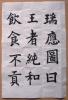 瑞應圖曰
王者純和
飲食不貢